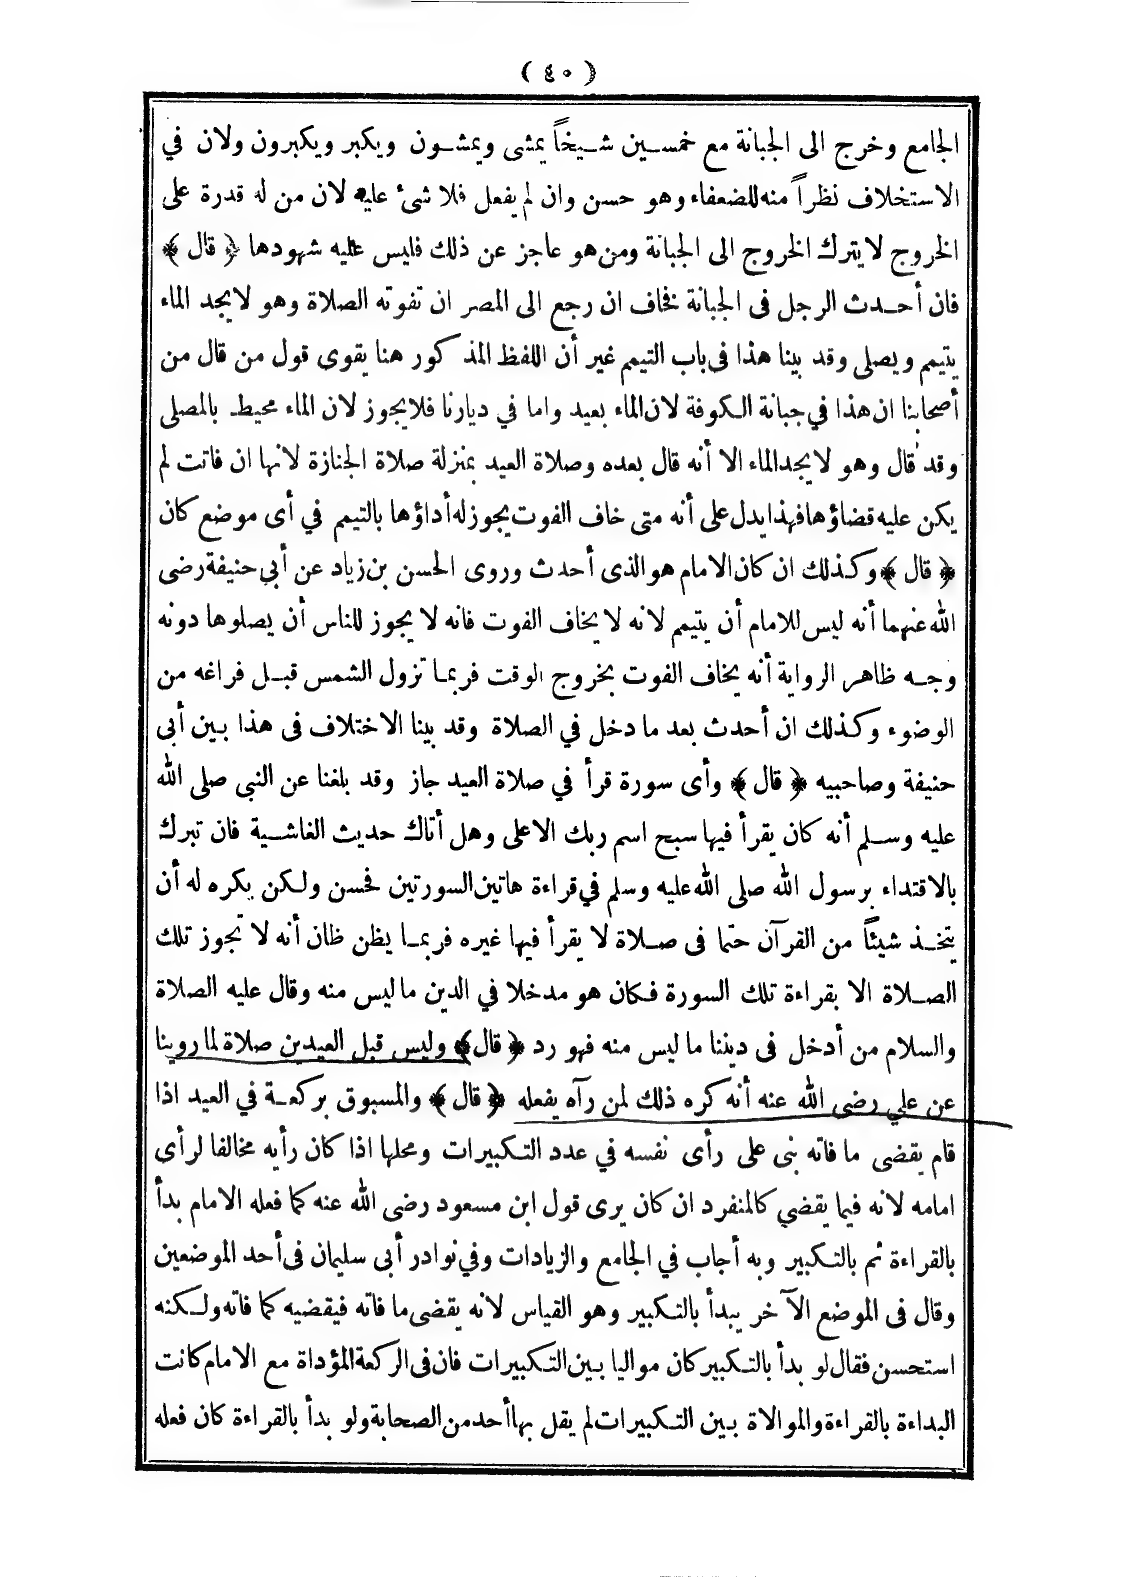 ( ٤٠ )
الجامع وخرج الى الجبانة مع خمسين شيخاً يمشى ويمشون ويكبر ويكبرون ولان في
الاستخلاف نظراً منه للضعفاء وهو حسن وان لم يفعل فلا شئ عليه لان من له قدرة على
الخروج لا يترك الخروج الى الجبانة ومن هو عاجز عن ذلك فليس عليه شهودها ﴿ قال ﴾
فان أحدث الرجل فى الجبانة فخاف ان رجع الى المصر ان تفوته الصلاة وهو لا يجد الماء
يتيمم ويصلى وقد بينا هذا فى باب التيمم غير أن اللفظ المذكور هنا يقوى قول من قال من
أصحابنا ان هذا في جبانة الكوفة لان الماء بعيد واما في ديارنا فلا يجوز لان الماء محيط بالمصلى
وقد قال وهو لا يجد الماء الا أنه قال بعده وصلاة العيد بمنزلة صلاة الجنازة لانها ان فاتت لم
يكن عليه قضاؤها فهذا يدل على أنه متى خاف الفوت يجوز له أداؤها بالتيمم في أى موضع كان
﴿ قال ﴾ وكذلك ان كان الامام هو الذى أحدث وروى الحسن بن زياد عن أبي حنيفة رضى
الله عنهما أنه ليس للامام أن يتيمم لانه لا يخاف الفوت فانه لا يجوز للناس أن يصلوها دونه
وجه ظاهر الرواية أنه يخاف الفوت بخروج الوقت فربما تزول الشمس قبل فراغه من
الوضوء وكذلك ان أحدث بعد ما دخل في الصلاة وقد بينا الاختلاف فى هذا بين أبى
حنيفة وصاحبيه ﴿ قال ﴾ وأى سورة قرأ في صلاة العيد جاز وقد بلغنا عن النبى صلى الله
عليه وسلم أنه كان يقرأ فيها سبح اسم ربك الاعلى وهل أتاك حديث الغاشية فان تبرك
بالاقتداء برسول الله صلى الله عليه وسلم في قراءة هاتين السورتين فحسن ولكن يكره له أن
يتخذ شيئاً من القرآن حتما فى صلاة لا يقرأ فيها غيره فربما يظن ظان أنه لا تجوز تلك
الصلاة الا بقراءة تلك السورة فكان هو مدخلا في الدين ما ليس منه وقال عليه الصلاة
والسلام من أدخل فى ديننا ما ليس منه فهو رد ﴿ قال ﴾ وليس قبل العيدين صلاة لما روينا
عن علي رضى الله عنه أنه كره ذلك لمن رآه يفعله ﴿ قال ﴾ والمسبوق بركعة في العيد اذا
قام يقضى ما فاته بنى على رأى نفسه في عدد التكبيرات ومحلها اذا كان رأيه مخالفا لرأى
امامه لانه فيما يقضي كالمنفرد ان كان يرى قول ابن مسعود رضى الله عنه كما فعله الامام بدأ
بالقراءة ثم بالتكبير وبه أجاب في الجامع والزيادات وفي نوادر أبى سليمان فى أحد الموضعين
وقال فى الموضع الآخر يبدأ بالتكبير وهو القياس لانه يقضى ما فاته فيقضيه كما فاته ولكنه
استحسن فقال لو بدأ بالتكبير كان مواليا بين التكبيرات فان فى الركعة المؤداة مع الامام كانت
البداءة بالقراءة والموالاة بين التكبيرات لم يقل بها أحد من الصحابة ولو بدأ بالقراءة كان فعله